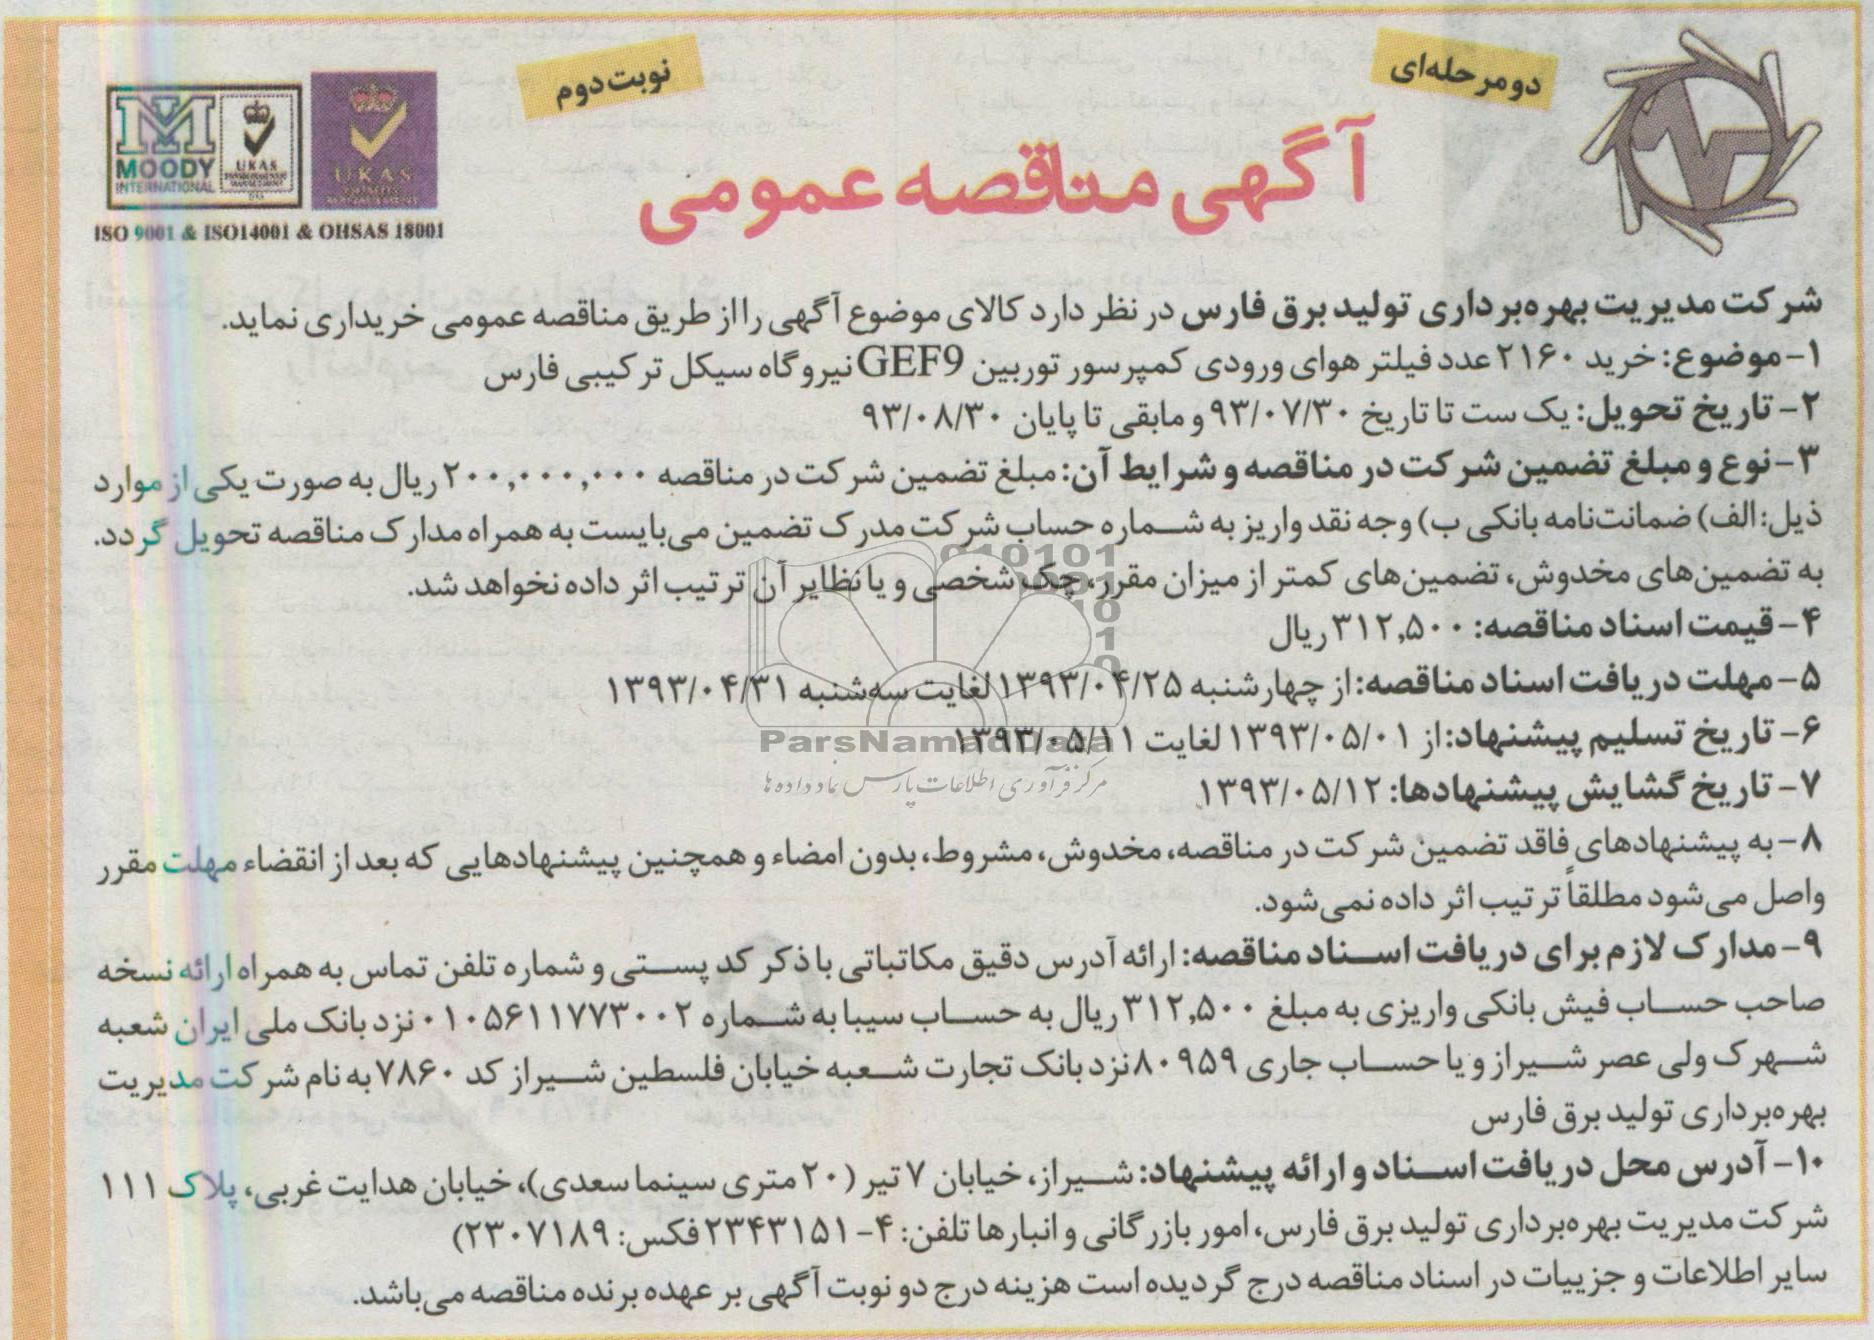 دو مرحله‌ای
نوبت دوم
آگهی مناقصه عمومی
MOODY
INTERNATIONAL
UKAS
UKAS
ISO 9001 & ISO14001 & OHSAS 18001
شرکت مدیریت بهره‌برداری تولید برق فارس در نظر دارد کالای موضوع آگهی را از طریق مناقصه عمومی خریداری نماید.
۱- موضوع: خرید ۲۱۶۰ عدد فیلتر هوای ورودی کمپرسور توربین GEF9 نیروگاه سیکل ترکیبی فارس
۲- تاریخ تحویل: یک ست تا تاریخ ۹۳/۰۷/۳۰ و مابقی تا پایان ۹۳/۰۸/۳۰
۳- نوع و مبلغ تضمین شرکت در مناقصه و شرایط آن: مبلغ تضمین شرکت در مناقصه ۲۰۰,۰۰۰,۰۰۰ ریال به صورت یکی از موارد
ذیل: الف) ضمانت‌نامه بانکی ب) وجه نقد واریز به شماره حساب شرکت مدرک تضمین می‌بایست به همراه مدارک مناقصه تحویل گردد.
به تضمین‌های مخدوش، تضمین‌های کمتر از میزان مقرر، چک شخصی و یا نظایر آن ترتیب اثر داده نخواهد شد.
۴- قیمت اسناد مناقصه: ۳۱۲,۵۰۰ ریال
۵- مهلت دریافت اسناد مناقصه: از چهارشنبه ۱۳۹۳/۰۴/۲۵ لغایت سه‌شنبه ۱۳۹۳/۰۴/۳۱
۶- تاریخ تسلیم پیشنهاد: از ۱۳۹۳/۰۵/۰۱ لغایت ۱۳۹۳/۰۵/۱۱
ParsNamadData
مرکز فرآوری اطلاعات پارس نماد داده‌ها
۷- تاریخ گشایش پیشنهادها: ۱۳۹۳/۰۵/۱۲
۸- به پیشنهادهای فاقد تضمین شرکت در مناقصه، مخدوش، مشروط، بدون امضاء و همچنین پیشنهادهایی که بعد از انقضاء مهلت مقرر
واصل می‌شود مطلقاً ترتیب اثر داده نمی‌شود.
۹- مدارک لازم برای دریافت اسناد مناقصه: ارائه آدرس دقیق مکاتباتی با ذکر کد پستی و شماره تلفن تماس به همراه ارائه نسخه
صاحب حساب فیش بانکی واریزی به مبلغ ۳۱۲,۵۰۰ ریال به حساب سیبا به شماره ۰۱۰۵۶۱۱۷۷۳۰۰۲ نزد بانک ملی ایران شعبه
شهرک ولی عصر شیراز و یا حساب جاری ۸۰۹۵۹ نزد بانک تجارت شعبه خیابان فلسطین شیراز کد ۷۸۶۰ به نام شرکت مدیریت
بهره‌برداری تولید برق فارس
۱۰- آدرس محل دریافت اسناد و ارائه پیشنهاد: شیراز، خیابان ۷ تیر (۲۰ متری سینما سعدی)، خیابان هدایت غربی، پلاک ۱۱۱
شرکت مدیریت بهره‌برداری تولید برق فارس، امور بازرگانی و انبارها تلفن: ۴-۲۳۴۳۱۵۱ فکس: ۲۳۰۷۱۸۹)
سایر اطلاعات و جزییات در اسناد مناقصه درج گردیده است هزینه درج دو نوبت آگهی بر عهده برنده مناقصه می‌باشد.